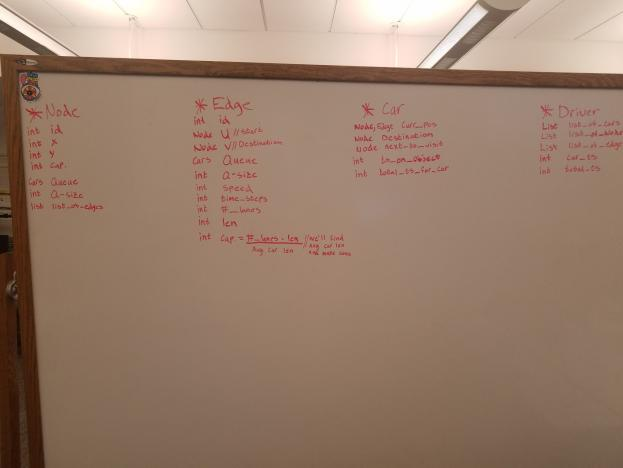 * Node
int id
int x
int y
int cap.
Cars Queue
int Q-size
list list_of_edges
* Edge
int id
Node U //start
Node V //Destination
Cars Queue
int Q-size
int speed
int time_steps
int #_lanes
int len
int cap = #_lanes · len //we'll find
Avg car len // Avg car len
* Car
Node, Edge curr_pos
Node Destination
Node next_to_visit
int ts_on_object
int total_ts_for_car
* Driver
List list_of_cars
List list_of_nodes
List list_of_edge
int car_ts
int total_ts